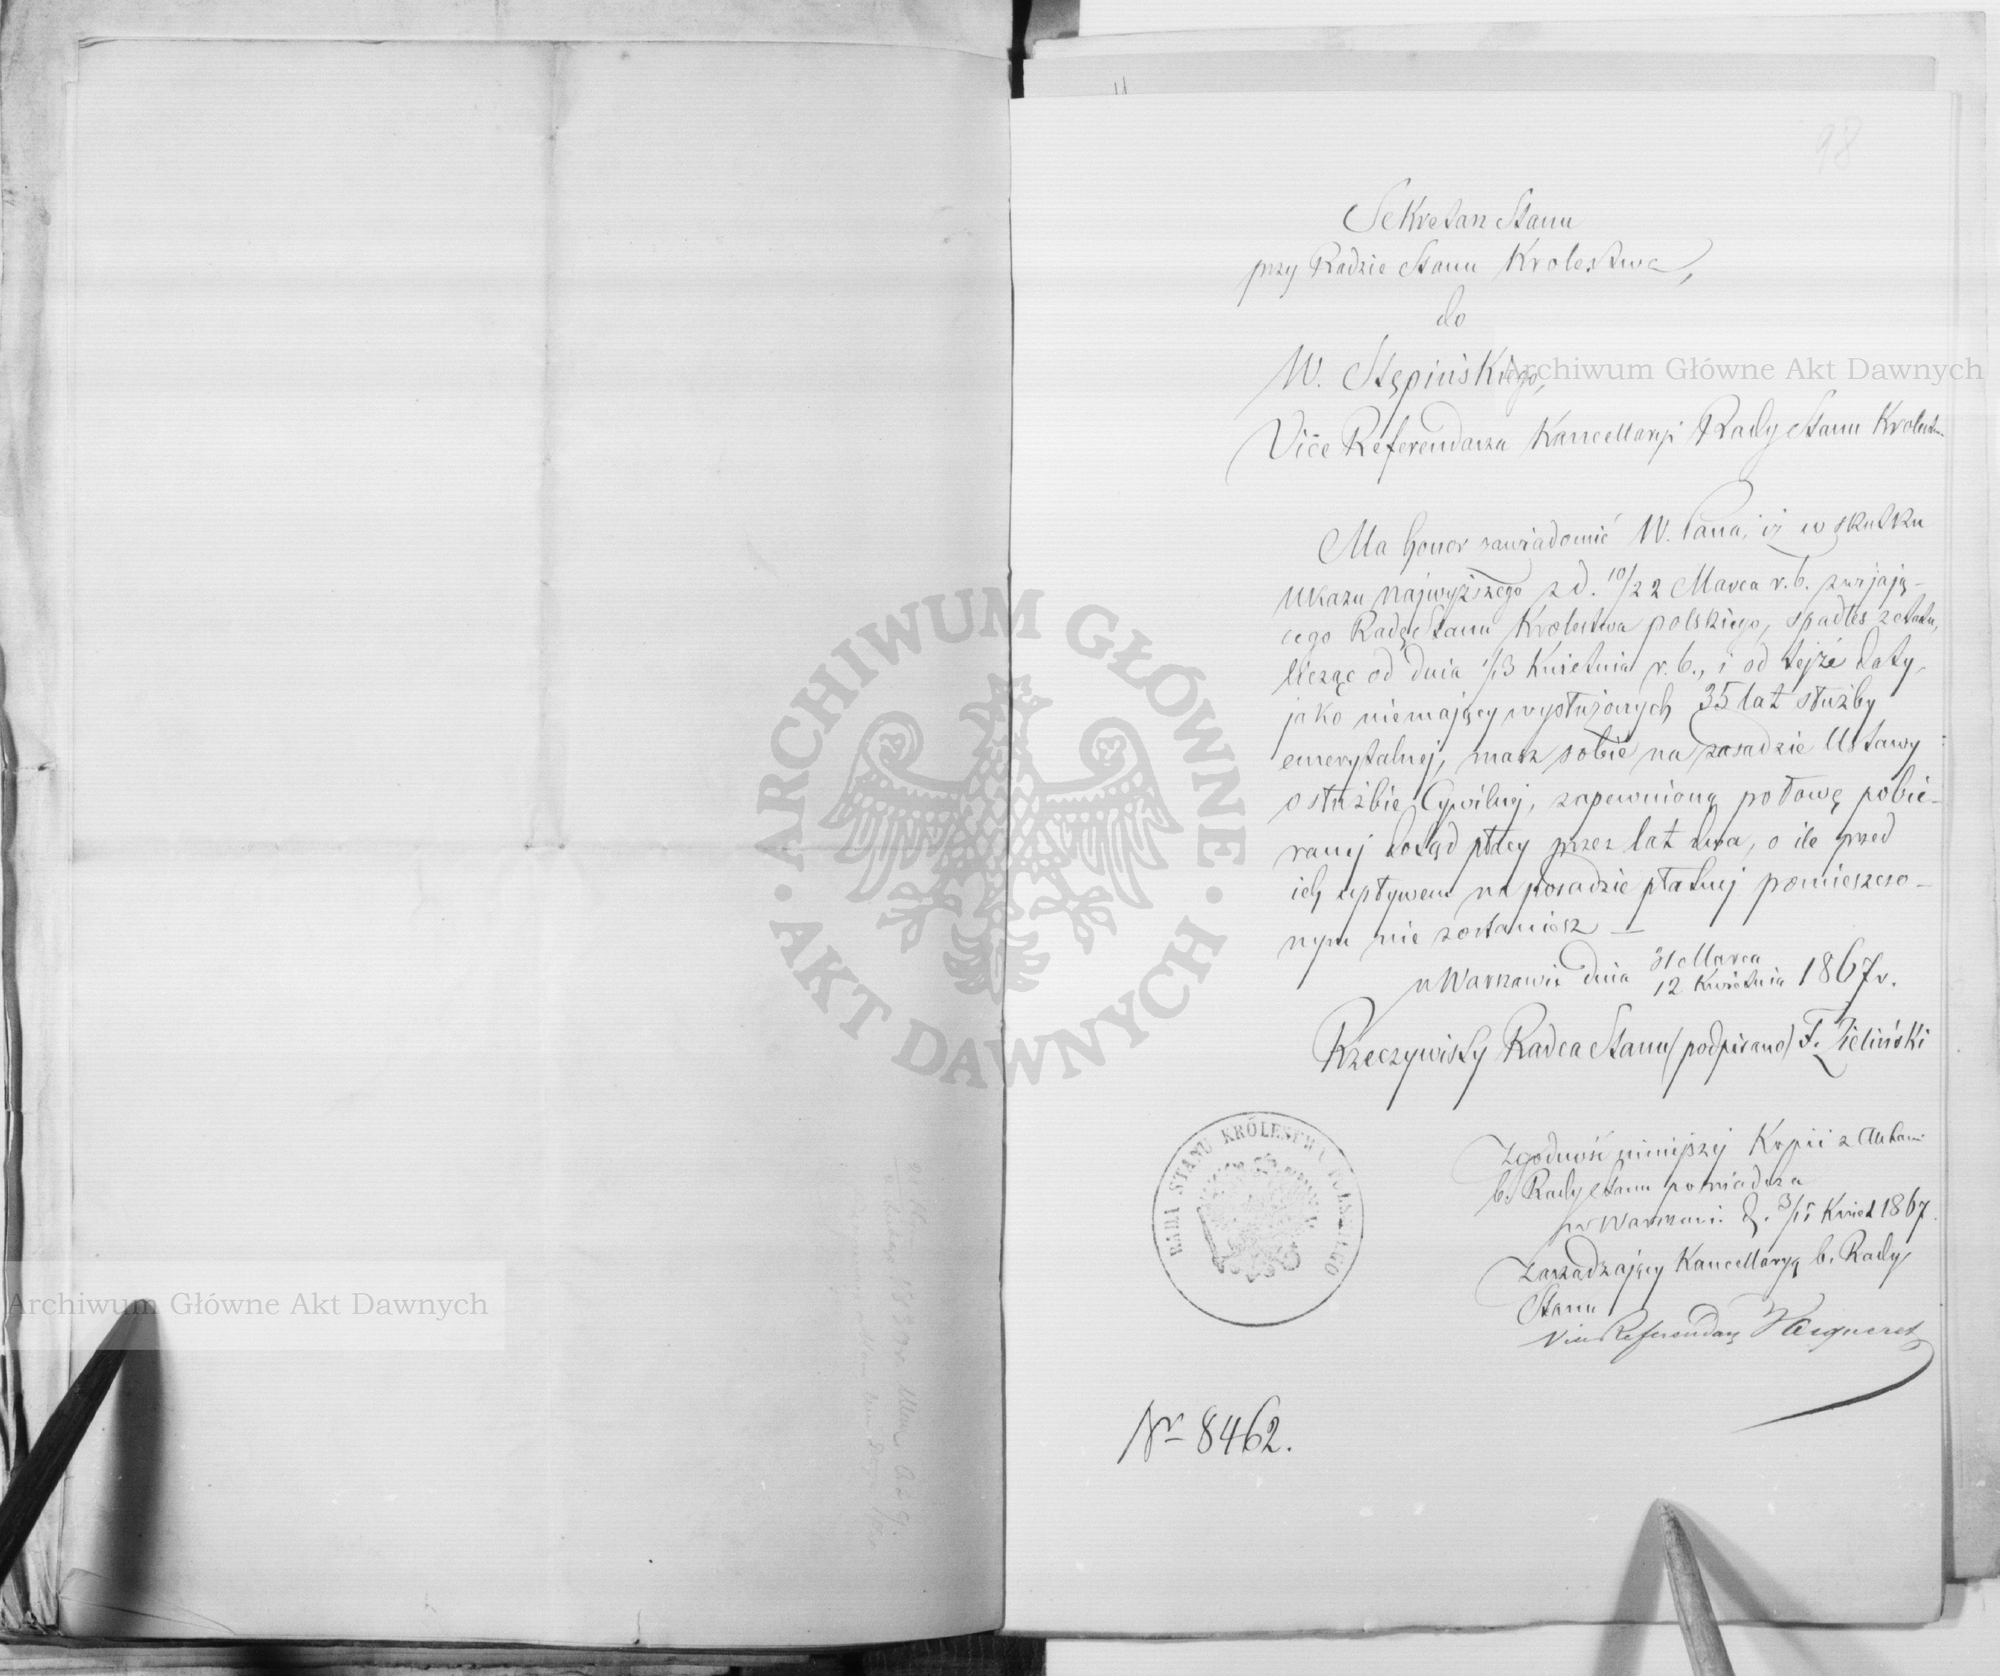 98
Sekretarz Stanu
przy Radzie Stanu Krolestwa,
do
W. Stępińskiego,
Vice Referendarza Kancellaryi Rady Stanu Krolestw.
Ma honor zawiadomić W. Pana, iż w skutku
ukazu najwyższego z d. 10/22 Marca r. b. zwijają-
cego Radę Stanu Krolestwa polskiego, spadłeś z etatu,
licząc od dnia 1/13 Kwietnia r. b., i od tejże daty,
jako niemający wysłużonych 35 lat służby
emerytalnej, masz sobie na zasadzie Ustawy
o służbie Cywilnej, zapewnioną połowę pobie-
ranej dotąd płacy przez lat dwa, o ile przed
ich upływem na posadzie płatnej pomieszczo-
nym nie zostaniesz —
w Warszawie dnia 31 Marca
12 Kwietnia 1867 r.
Rzeczywisty Radca Stanu (podpisano) F. Zieliński
Zgodność niniejszej Kopii z Aktami
b. Rady Stanu poświadcza
w Warszawie d. 3/15 Kwiet 1867.
Zarządzający Kancellaryą b. Rady
Stanu
Vice Referendarz
RADA STANU KRÓLESTWA POLSKIEGO
Nr 8462.
Archiwum Główne Akt Dawnych
Archiwum Główne Akt Dawnych
ARCHIWUM GŁÓWNE
AKT DAWNYCH